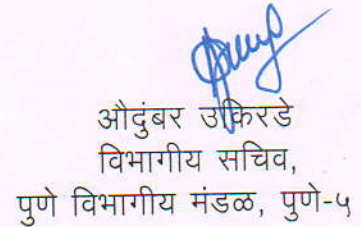 औदुंबर उकिरडे
विभागीय सचिव,
पुणे विभागीय मंडळ, पुणे-५